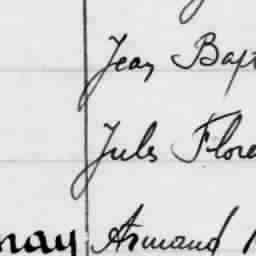 Jean Bapt
Jules Flore
nay Armand